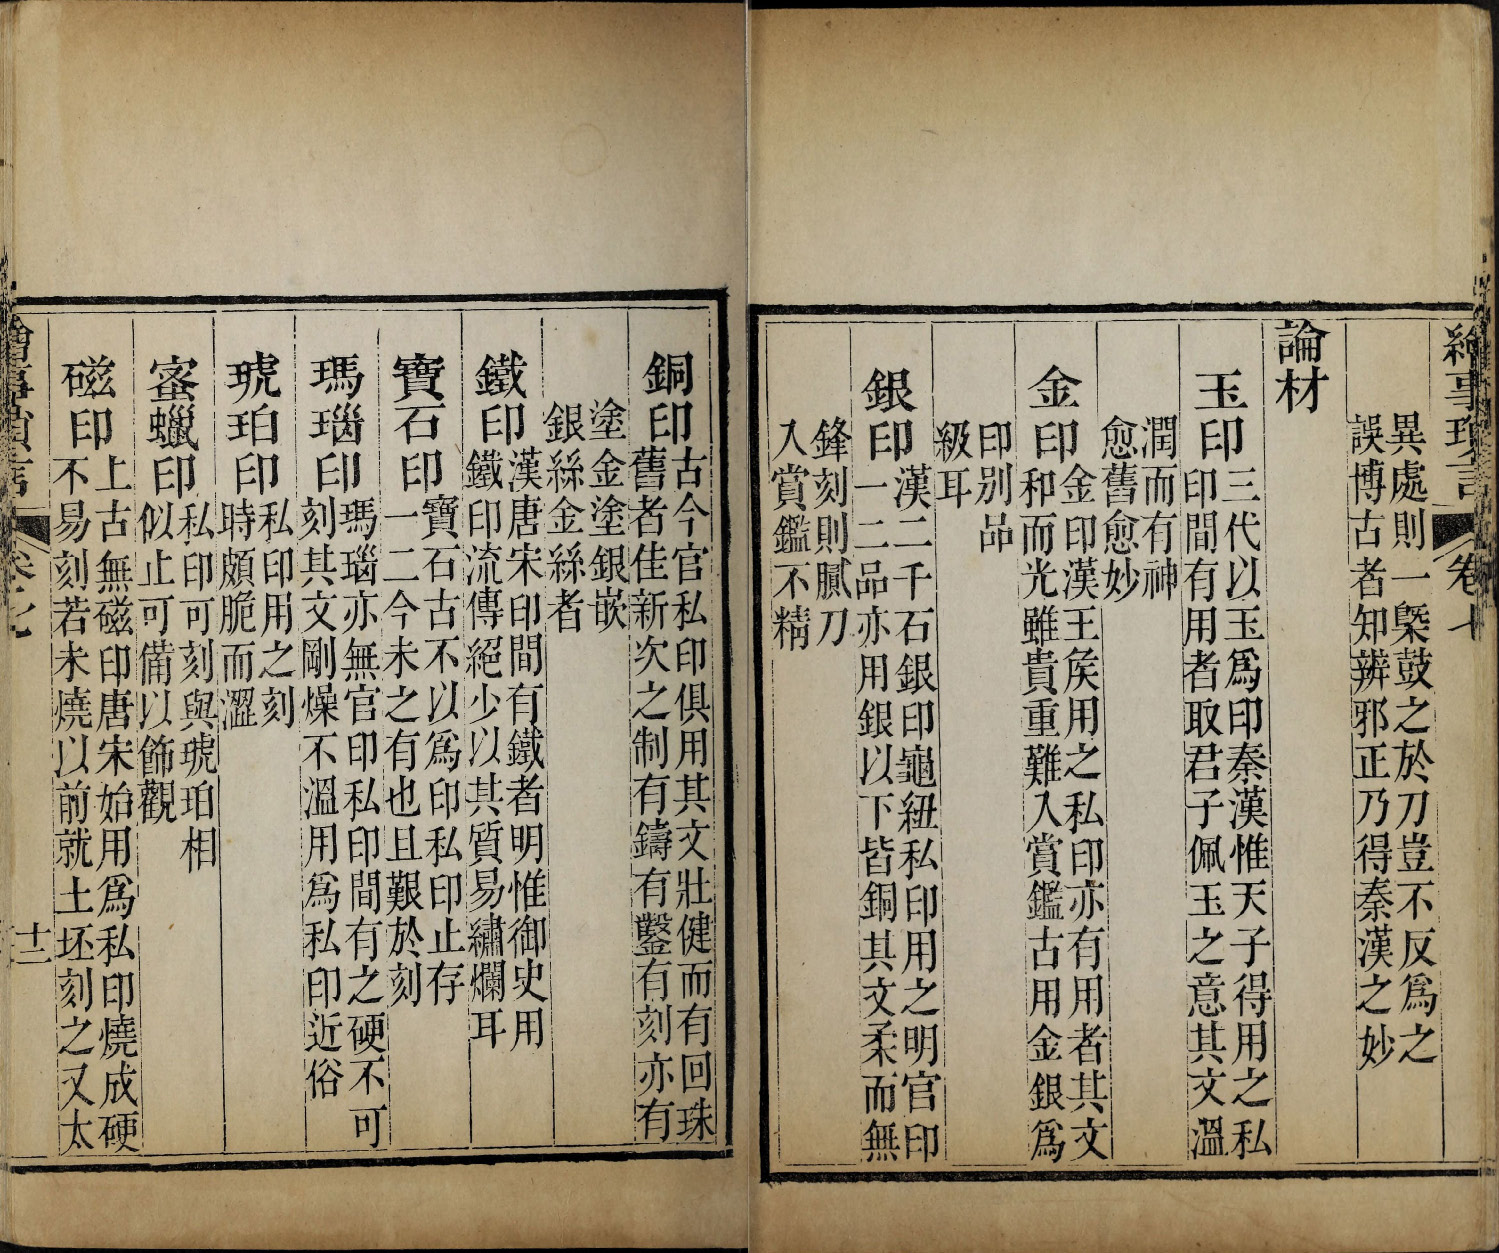 繪事瑣言 卷七
異處則一槩鼓之於刀豈不反爲之
誤博古者知辨邪正乃得秦漢之妙
論材
玉印
三代以玉爲印秦漢惟天子得用之私
印間有用者取君子佩玉之意其文溫
潤而有神
愈舊愈妙
金印
金印漢王矦用之私印亦有用者其文
和而光雖貴重難入賞鑑古用金銀爲
印別品
級耳
銀印
漢二千石銀印龜紐私印用之明官印
一二品亦用銀以下皆銅其文柔而無
鋒刻則膩刀
入賞鑑不精
銅印
古今官私印俱用其文壯健而有回珠
舊者佳新次之制有鑄有鑿有刻亦有
塗金塗銀嵌
銀絲金絲者
鐵印
漢唐宋印間有鐵者明惟御史用
鐵印流傳絕少以其質易繡爛耳
寶石印
寶石古不以爲印私印止存
一二今未之有也且艱於刻
瑪瑙印
瑪瑙亦無官印私印間有之硬不可
刻其文剛燥不溫用爲私印近俗
琥珀印
私印用之刻
時頗脆而澀
蜜蠟印
私印可刻與琥珀相
似止可備以飾觀
磁印
上古無磁印唐宋始用爲私印燒成硬
不易刻若未燒以前就土坯刻之又太
繪事瑣言 卷之七
十二